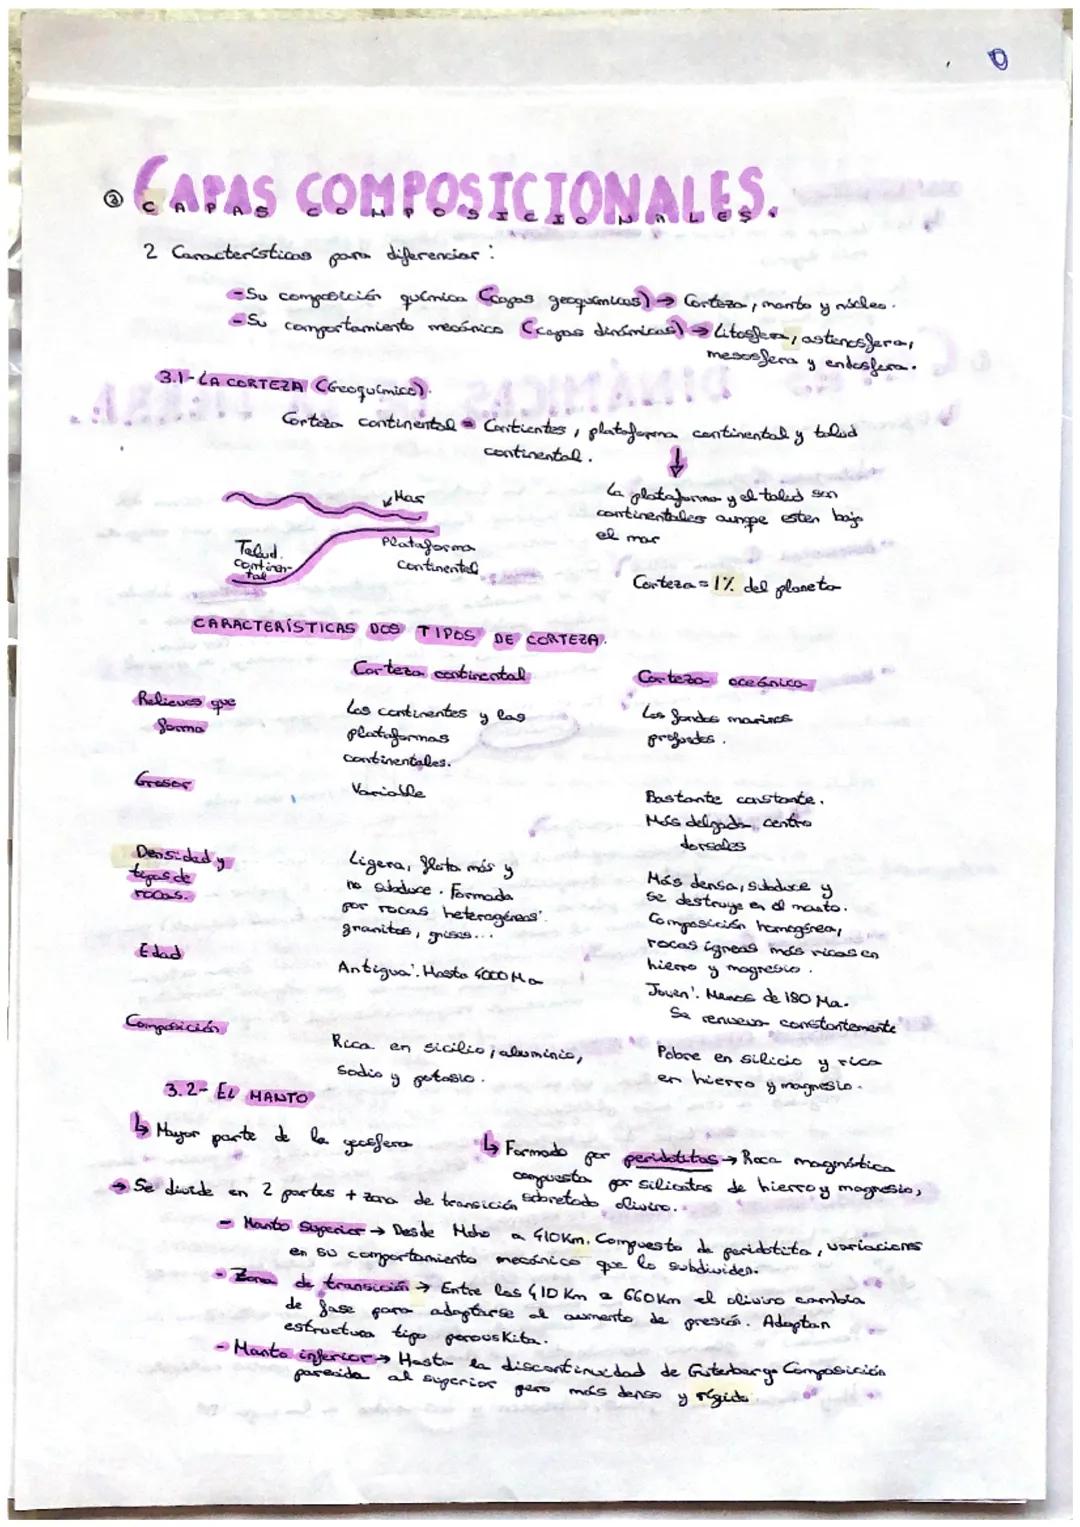 ③ CAPAS COMPOSICIONALES.
2 Características para diferenciar:
- Su composición química (capas geoquímicas) → Corteza, manto y núcleo.
- Su comportamiento mecánico (capas dinámicas) → Litosfera, astenosfera,
mesosfera y endosfera.
3.1- LA CORTEZA (Geoquímica).
Corteza continental = Continentes, plataforma continental y talud
continental.
↓
La plataforma y el talud son
continentales aunqe esten bajo
el mar
Mar
Talud
continen-
tal
Plataforma
continental
Corteza = 1% del planeta
CARACTERÍSTICAS DOS TIPOS DE CORTEZA.
Corteza continental
Corteza oceánica
Relieves que
forma
Los continentes y las
plataformas
continentales.
Los fondos marinos
profundos.
Grosor
Variable
Bastante constante.
Más delgada centro
dorsales
Densidad y
tipos de
rocas.
Ligera, flota más y
no subduce. Formada
por rocas heterogéneas:
granitos, gnises...
Más densa, subduce y
se destruye en el manto.
Composición homogénea,
rocas ígneas más ricas en
hierro y magnesio.
Edad
Antigua: Hasta 4000 Ma
Joven: Menos de 180 Ma.
Se renueva constantemente
Composición
Rica en sicilio, aluminio,
sodio y potasio.
Pobre en silicio y rica
en hierro y magnesio.
3.2- EL MANTO
↳ Mayor parte de la geosfera
↳ Formado por peridotitas → Roca magmática
compuesta por silicatos de hierro y magnesio,
sobretodo olivino.
→ Se divide en 2 partes + zona de transición
- Manto superior → Desde Moho a 410Km. Compuesto de peridotita, variaciones
en su comportamiento mecánico que lo subdividen.
- Zona de transición → Entre los 410 Km a 660Km el olivino cambia
de fase para adaptarse al aumento de presión. Adoptan
estructura tipo perouskita.
- Manto inferior → Hasta la discontinuidad de Guterberg. Composición
parecida al superior pero más denso y rígido.